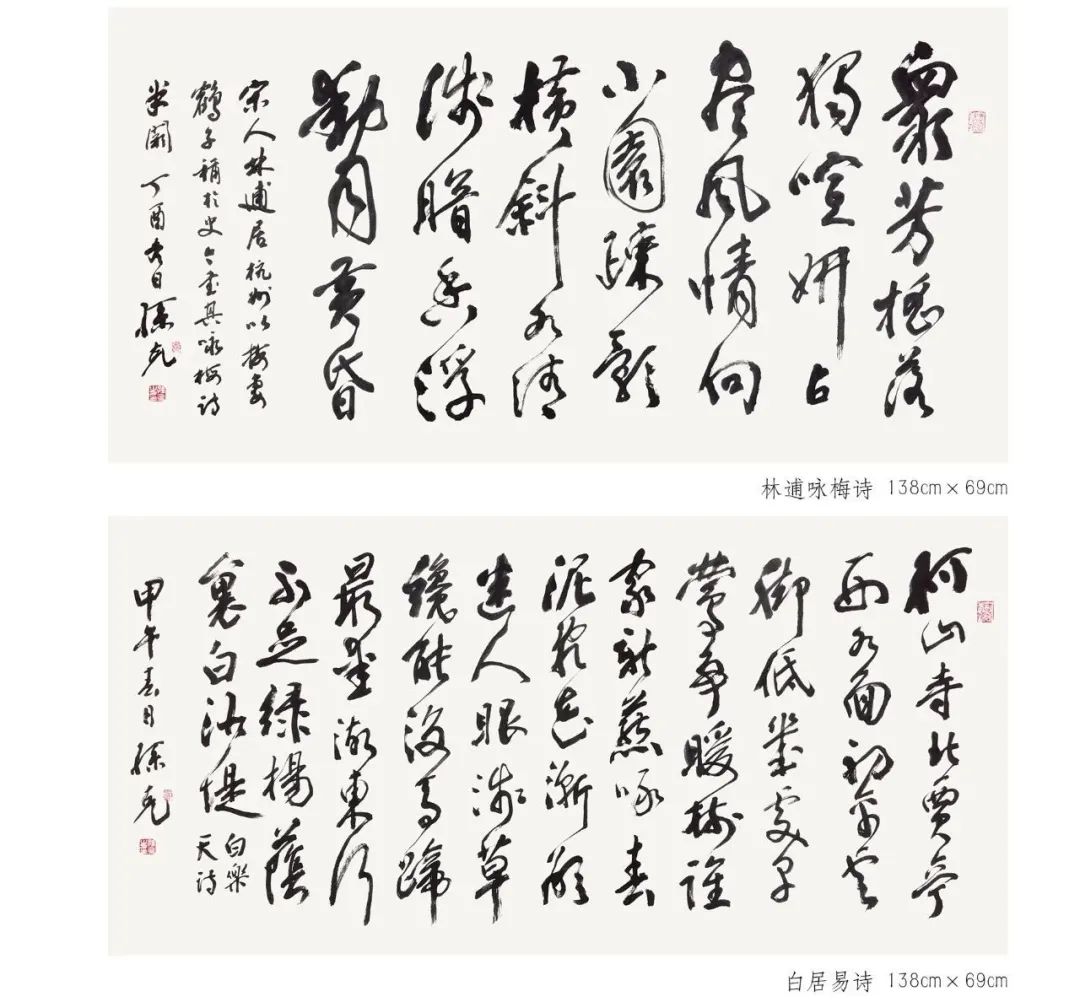 衆芳摇落
獨喧妍占
盡風情向
小園疎影
横斜水清
浅暗香浮
動月黄昏
宋人林逋居杭州以梅妻
鶴子稱於史今書其咏梅诗
半闋 丁酉冬日 孫克
林逋咏梅诗 138cm×69cm
孤山寺北賈亭
西水面初平雲
脚低幾處早
鶯争暖樹誰
家新燕啄春
泥乱花漸欲
迷人眼浅草
纔能没馬蹄
最愛湖東行
不足緑楊蔭
裏白沙堤
白樂
天诗
甲午春日 孫克
白居易诗 138cm×69cm